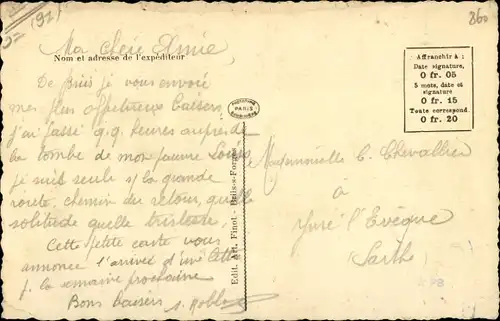 (91)
5=
360
Ma chère Elmie,
Nom et adresse de l'expéditeur
De Briis je vous envoie
mes plus affectueux baisers
j'ai passé q.q. heures auprès de
la tombe de mon pauvre Louis
je suis seule s/ la grande
route, chemin du retour, quelle
solitude quelle tristesse,
Cette petite carte vous
annonce l'arrivée d'une
p. la semaine prochaine
Bons baisers
PARIS
Edit. Art. Finot - Briis-s-Forges
Affranchir à :
Date signature,
0 fr. 05
5 mots, date et
signature
0 fr. 15
Toute correspond.
0 fr. 20
Mademoiselle C. Chevallier
à
Yvré l'Evêque
Sarthe